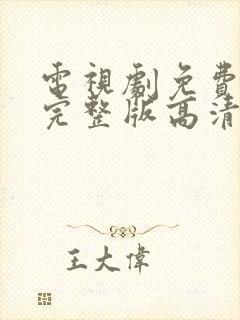 電視劇免費
完整版高清
王大偉